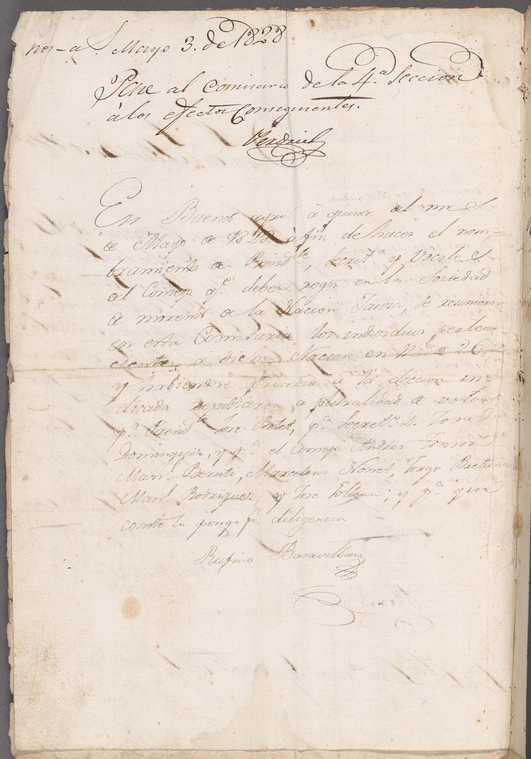 nos-a S Mayo 3. de 1828
Pase al Comisario de la 4.ª Seccion
á los efectos consiguientes.
En Buenos ayres à quince del mes
de Mayo de à fin de hacer el nom-
bramiento de Presid.te, Secret.º y Vocales
del Consejo q.e deben regir en la Sociedad
de morenos de la Nacion se reunieron
en esta Comisaria los individuos pertene-
cientes a dicha Nacion en N.º de 26
y habiendose à la eleccion in-
dicada a pluralidad de votos
p.ª Presid.te José Botet, p.ª Secret.º José
Dominguez, y p.ª el Consejo Andres
Man.l Beruti, Jorge
Man.l Rodriguez, y José y p.ª que
conste lo pongo p.r diligencia
Rufino Basavilbaso